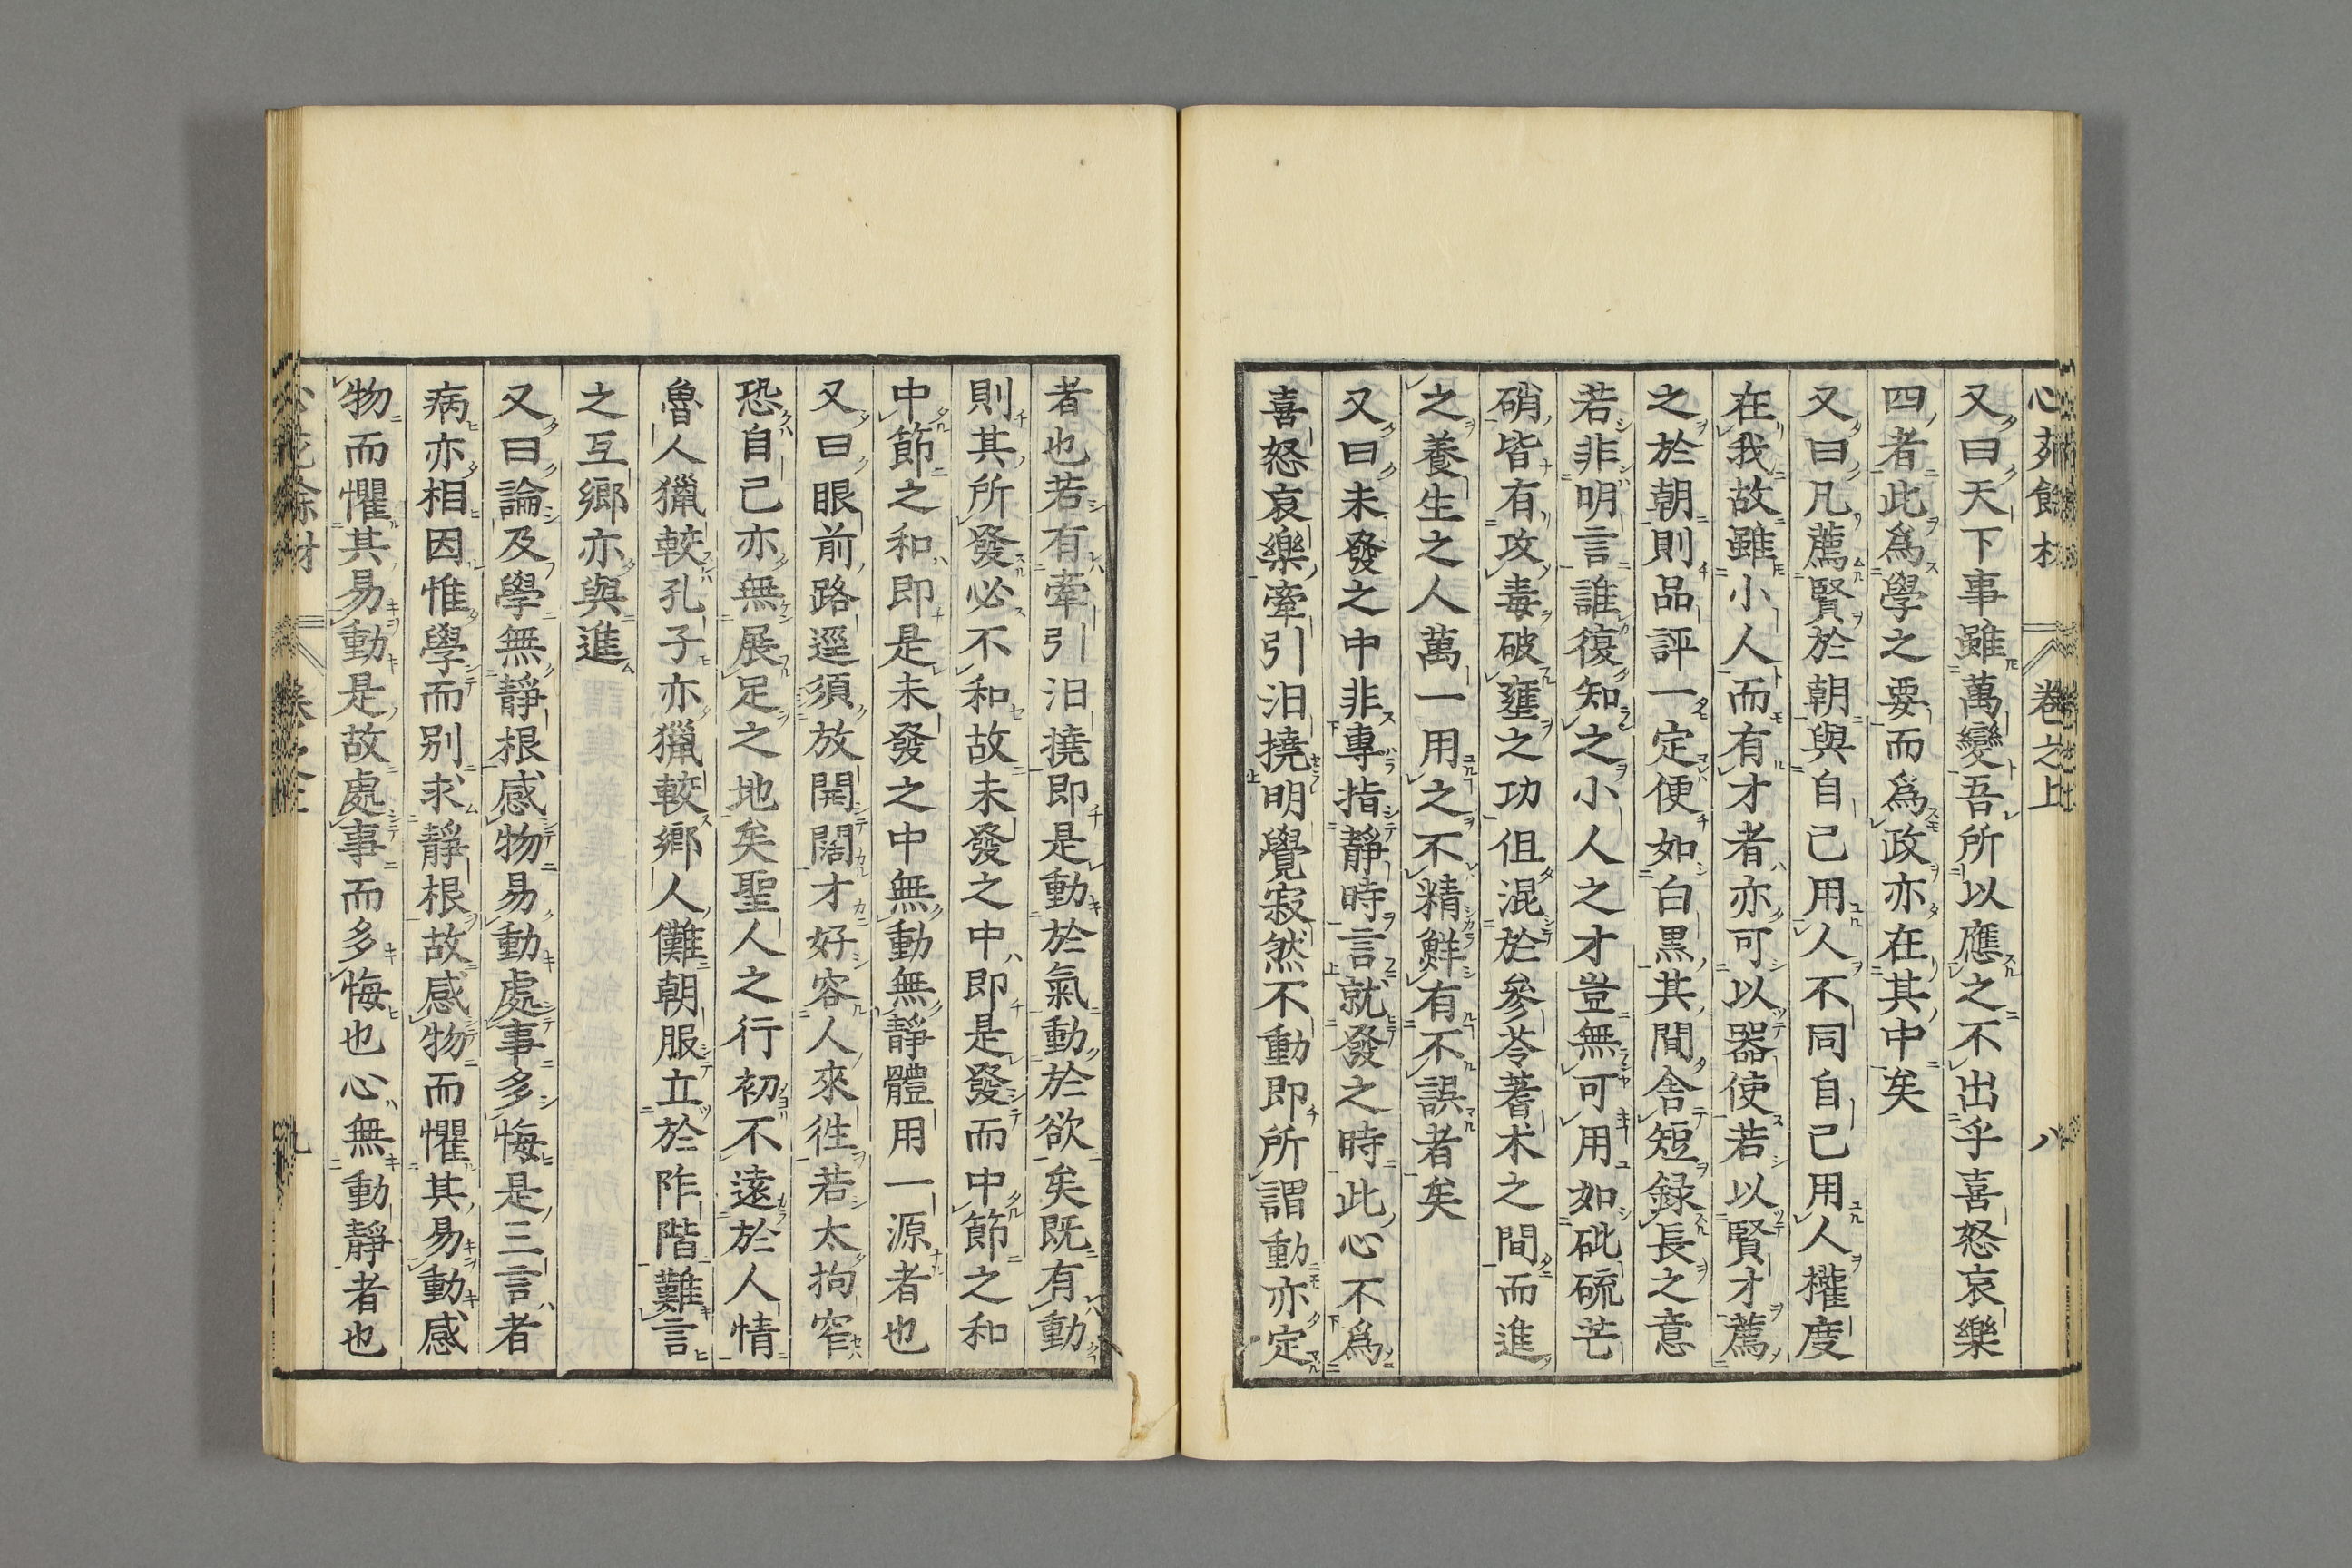 心苑餘材 卷之上 八
又曰天下事雖萬變吾所以應之不出乎喜怒哀樂
四者此爲學之要而爲政亦在其中矣
又曰凡薦賢於朝與自己用人不同自己用人權度
在我故雖小人而有才者亦可以器使若以賢才薦
之於朝則品評一定便如白黒其間舎短録長之意
若非明言誰復知之小人之才豈無可用如砒硫芒
硝皆有攻毒破壅之功但混於參苓蓍朮之間而進
之養生之人萬一用之不精鮮有不誤者矣
又曰未發之中非專指靜時言就發之時此心不爲
喜怒哀樂牽引汨撓明覺寂然不動即所謂動亦定
者也若有牽引汨撓即是動於氣動於欲矣既有動
則其所發必不和故未發之中即是發而中節之和
中節之和即是未發之中無動無靜體用一源者也
又曰眼前路逕須放開闊才好容人來徃若太拘窄
恐自己亦無展足之地矣聖人之行初不遠於人情
魯人獵較孔子亦獵較鄕人儺朝服立於阼階難言
之互鄕亦與進
又曰論及學無靜根感物易動處事多悔是三言者
病亦相因惟學而别求靜根故感物而懼其易動感
物而懼其易動是故處事而多悔也心無動靜者也
餘材 九